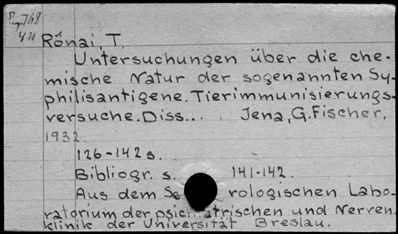 Rónai, T.
Untersuchungen über die che-
mische Natur der sogenannten Sy-
philisantigene. Tierimmunisierungs-
versuche. Diss... Jena, G. Fischer,
1932
126-142 s.
Bibliogr. s. 141-142.
Aus dem Se rologischen Labo-
ratorium der psichiatrischen und Nerven
klinik der Universität Breslau.